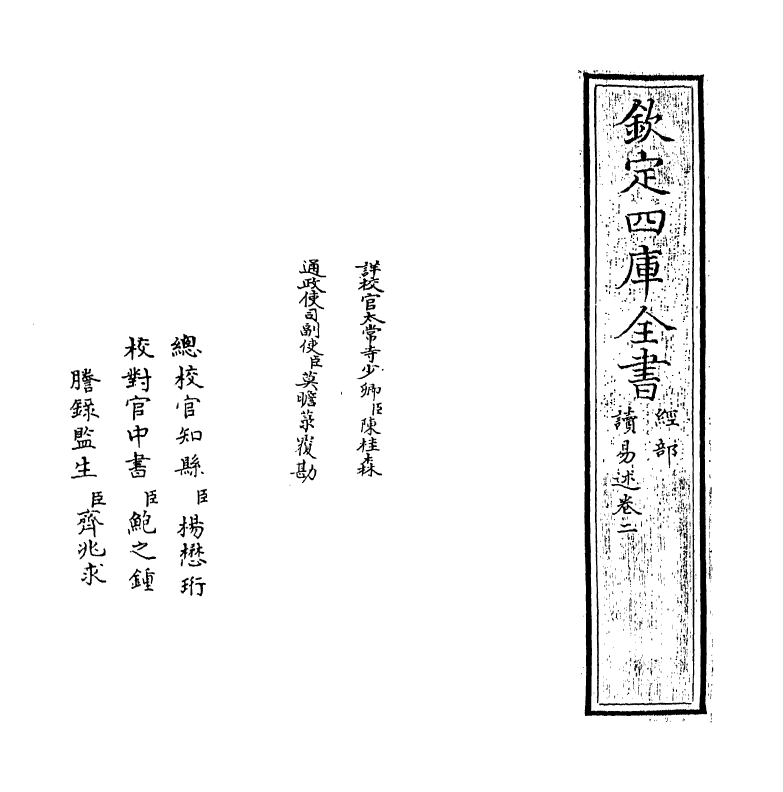 欽定四庫全書
經部
讀易述卷二
詳校官太常寺少卿臣陳桂森
通政使司副使臣莫瞻菉覆勘
總校官知縣臣楊懋珩
校對官中書臣鮑之鍾
謄錄監生臣齊兆求